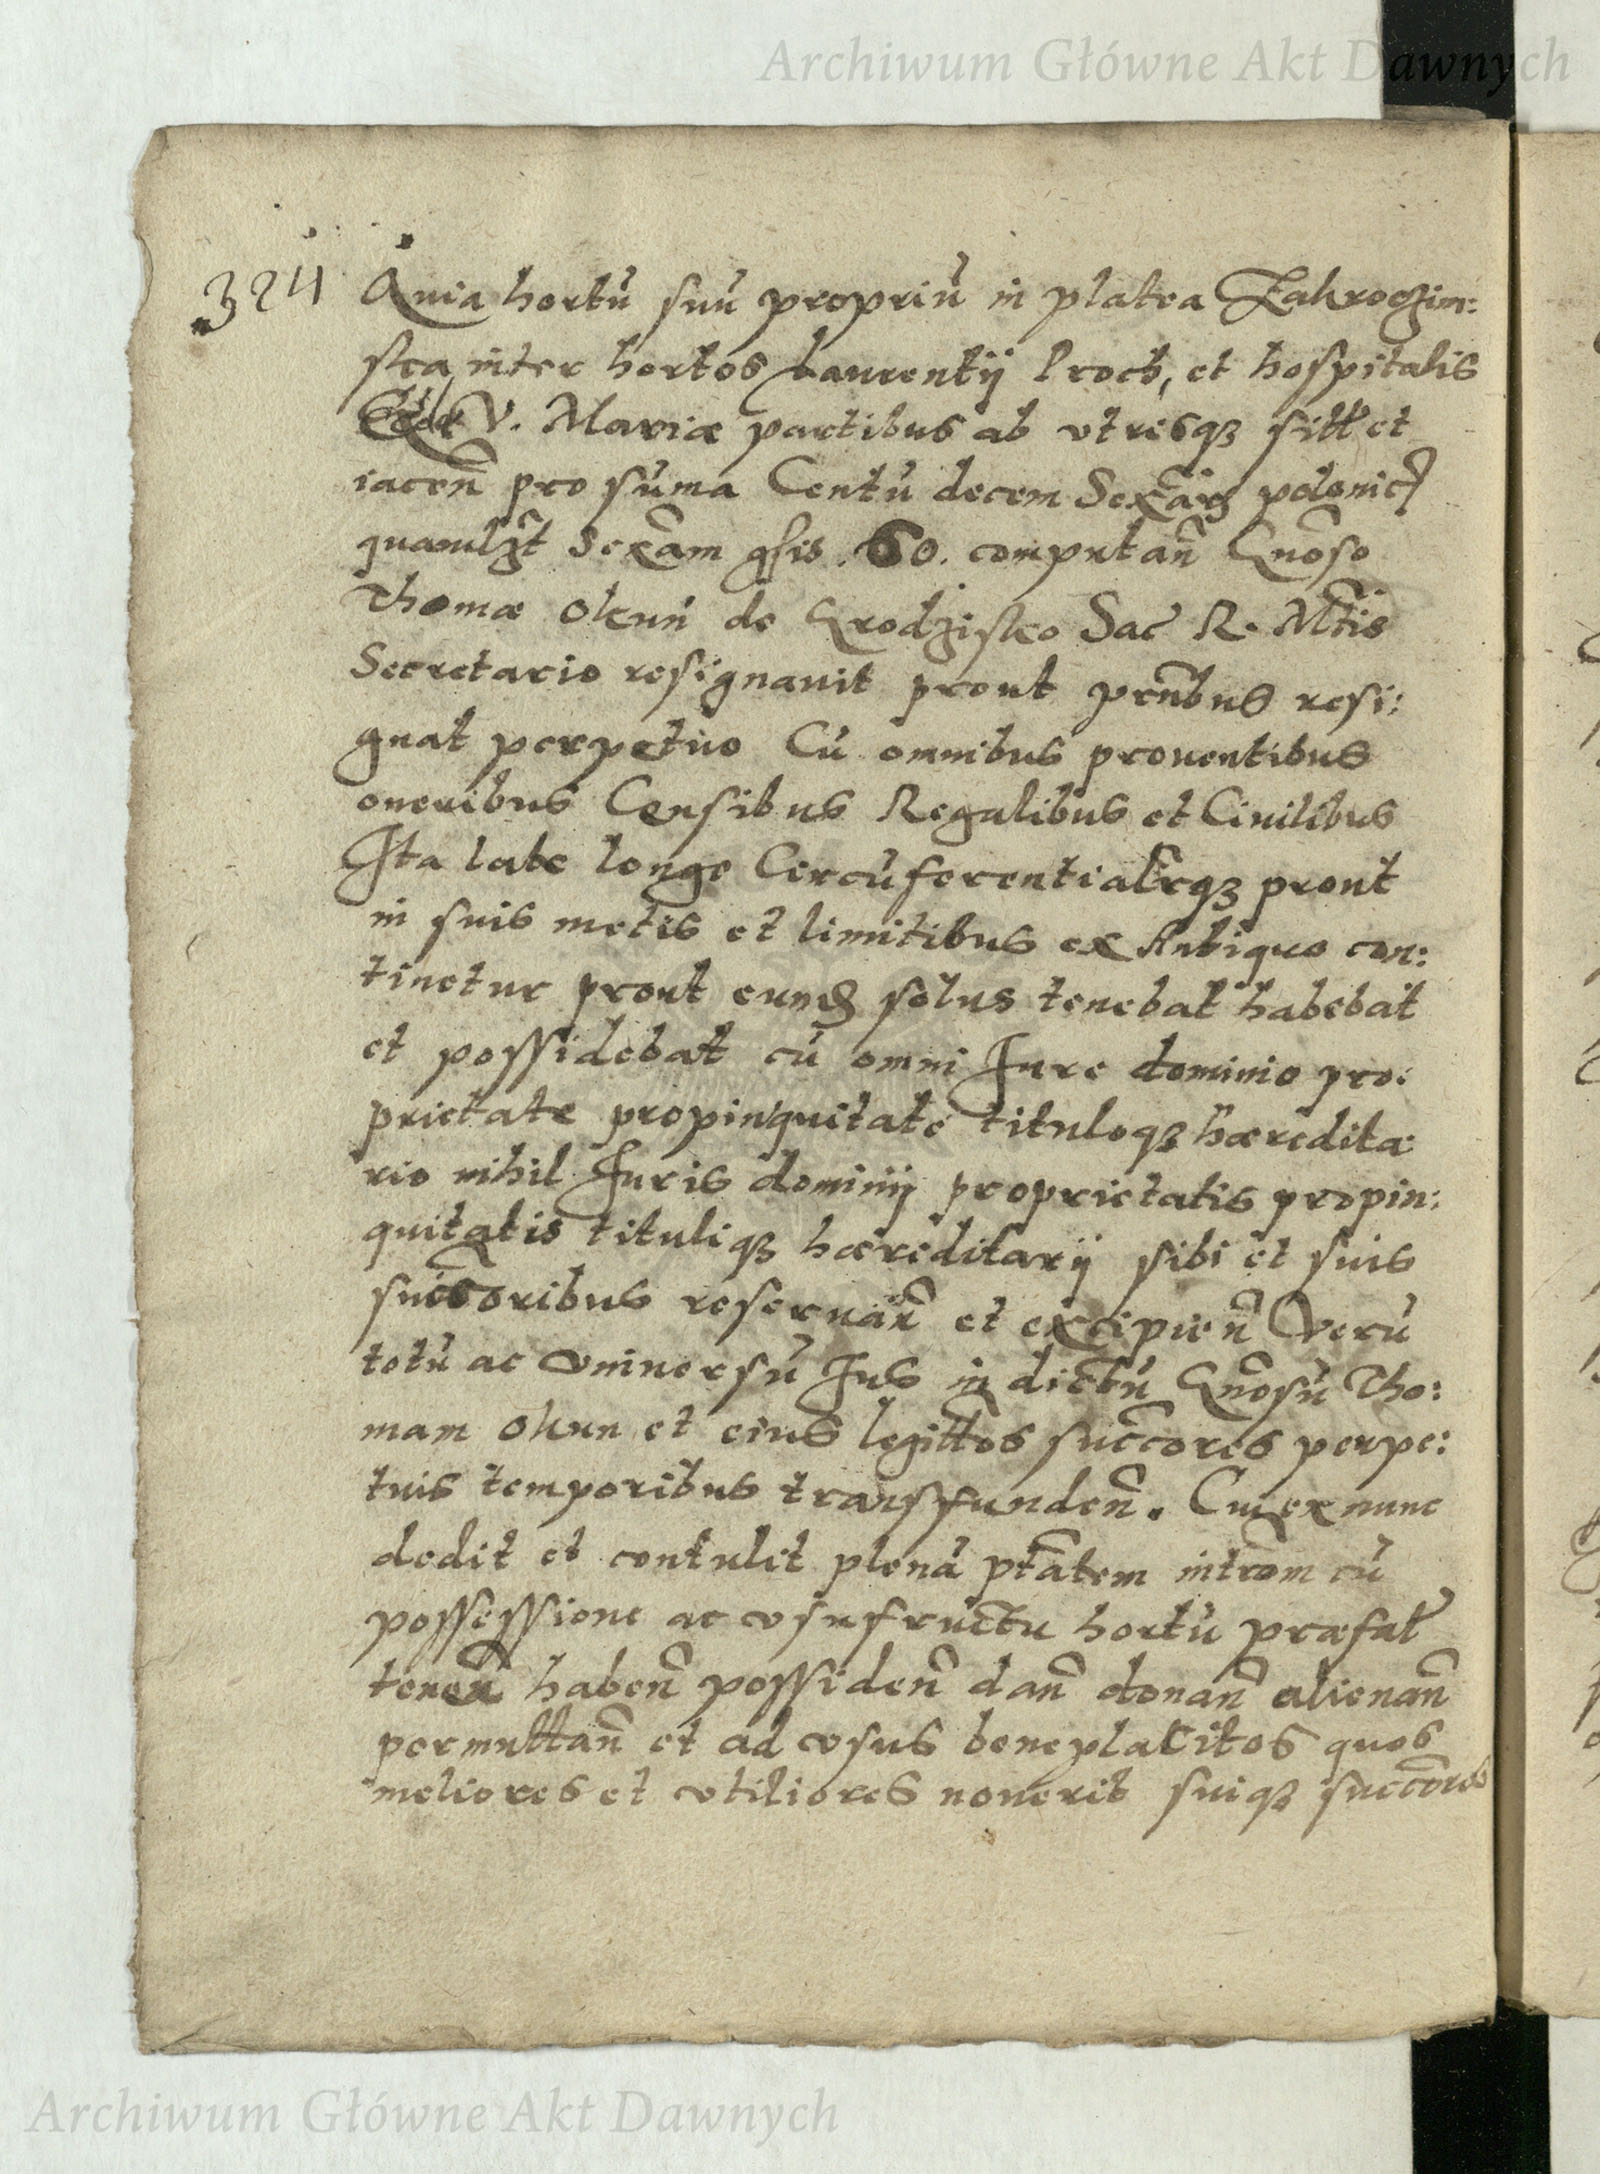 Archiwum Główne Akt Dawnych
324
Quia hortū suū propriū in platea Zakroczim:
ska inter hortos Laurentij Proch, et hospitalis
V. Mariæ partibus ab utrisqȝ sitt et
iaceñ pro sūma Centū decem Sexāg polonic
quamlʒt Sexām gſis .60. computañ Gnōso
Thomæ Okuń de Grodzisko Sac R. Mtis
Secretario resignauit prout prñtbus resi:
gnat perpetuo Cū omnibus prouentibus
oneribus Censibus Regalibus et Ciuilibus
Ita late longe Circūferentialrqȝ prout
in suis metis et limitibus ex Antiquo con:
tinetur prout eund solus tenebat habebat
et possidebat cū omni Iure dominio pro:
prietate propinquitate tituloqȝ hæredita
rio nihil Iuris dominij proprietatis propin:
quitatis tituliqȝ hæreditarij sibi et suis
succoribus reseruañ et excipieñ Verū
totū ac vniuersū Ius in dictū Gnōsū Tho:
mam Okun et eius legittos succores perpe:
tuis temporibus transfundeñ. Cui ex nunc
dedit et contulit plenā ptātem intrōm cū
possessione ac vsufructu hortū præfat
teneñ habeñ possideñ dañ donañ alienañ
permuttañ et ad vsus beneplacitos quos
meliores et vtiliores nouerit suiqȝ succores
Archiwum Główne Akt Dawnych